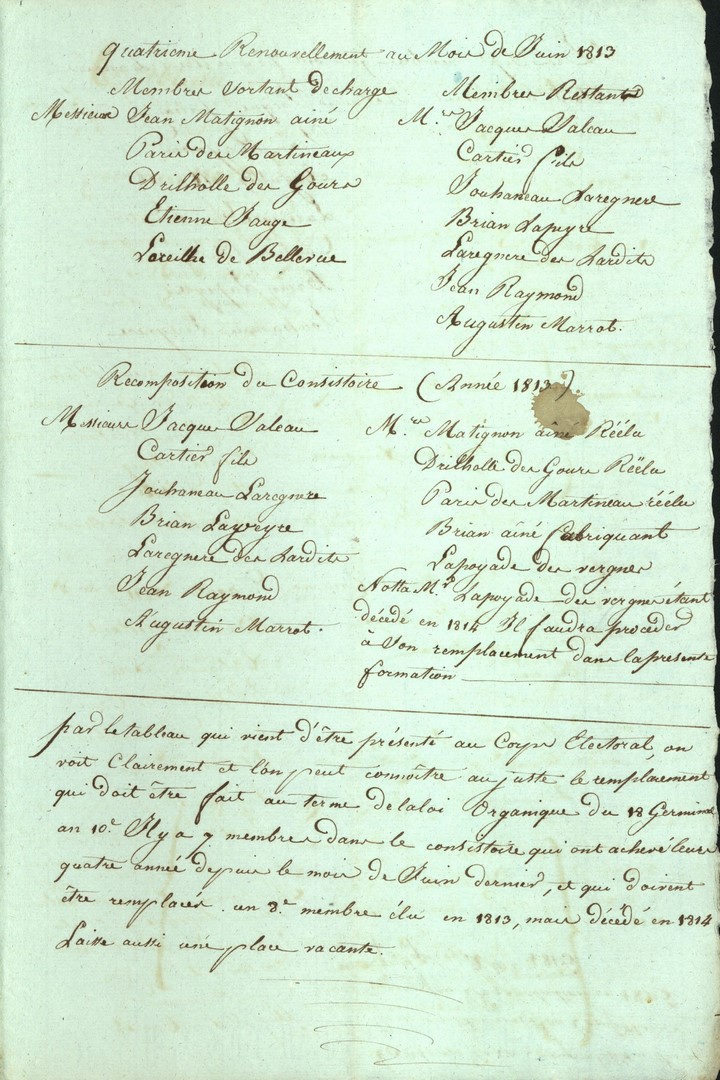 Quatrieme Renouvellement au Mois de Juin 1813
Membres Sortant de charge
Messieurs Jean Matignon ainé
Paris des Martineaux
Drilholle des Gours
Etienne Fauge
Loreilhe de Bellevue
Membres Restant
M.rs Jacques Valeau
Cartier fils
Jouhaneau Laregnere
Brian Lapeyre
Laregnere des Lardits
Jean Raymond
Augustin Marrot.
Recomposition du Consistoire (Année 1813).
Messieurs Jacques Valeau
Cartier fils
Jouhaneau Laregnere
Brian Lapeyre
Laregnere des Lardits
Jean Raymond
Augustin Marrot.
M.rs Matignon aîné Réélu
Drilholle des Gours Réëlu
Paris des Martineau réélu
Brian aîné fabriquant
Lapoyade des vergnes
Notta M.r Lapoyade des vergnes étant
décédé en 1814 Il faudra proceder
à Son remplacement dans la présente
formation
par le tableau qui vient d'être présenté au Corps Electoral, on
voit Clairement et l'on peut connoître au juste le remplacement
qui doit être fait au terme de la loi Organique du 18 Germinal
an 10.e Il y a 7 membres dans le consistoire qui ont achevé leurs
quatre année depuis le mois de Juin dernier, et qui doivent
être remplacés. un 8.e membre élu en 1813, mais décédé en 1814
Laisse aussi une place vacante.